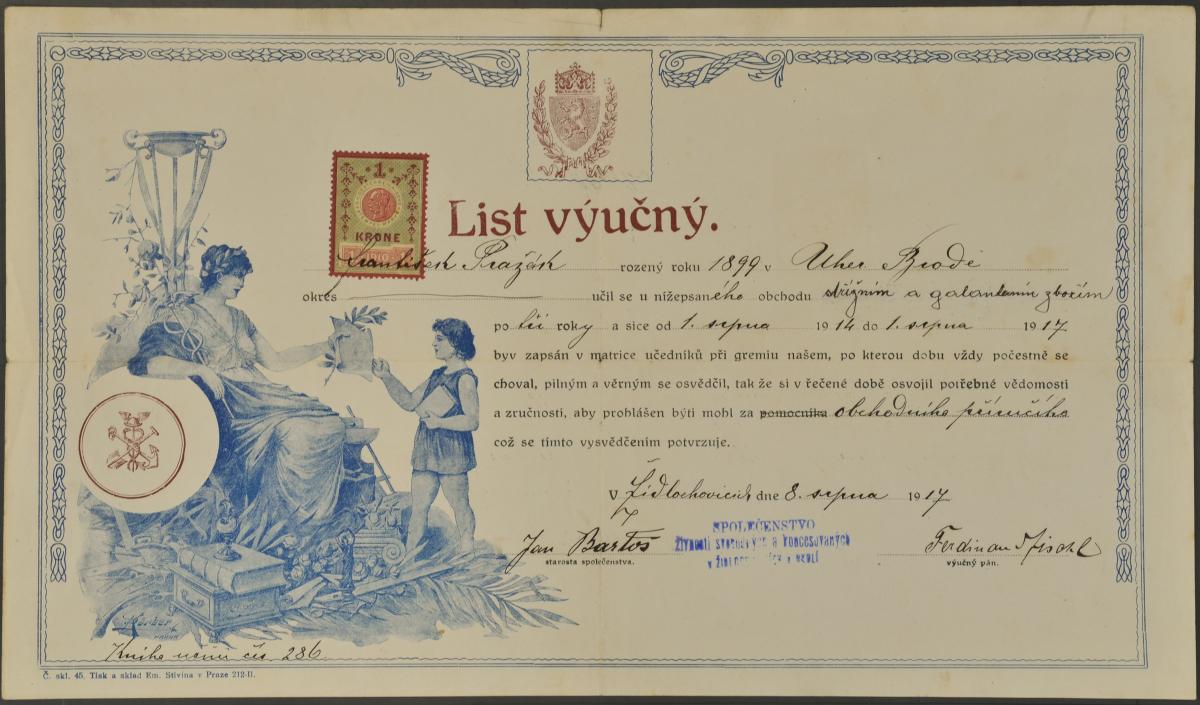 1
KRONE
1910
List výučný.
František Pražák rozený roku 1899 v Uher Brodě
okres učil se u nížepsaného obchodu střižním a galantením zbožím
po tři roky a sice od 1. srpna 1914 do 1. srpna 1917
byv zapsán v matrice učedníků při gremiu našem, po kterou dobu vždy počestně se
choval, pilným a věrným se osvědčil, tak že si v řečené době osvojil potřebné vědomosti
a zručnosti, aby prohlášen býti mohl za pomocníka obchodního příručího
což se tímto vysvědčením potvrzuje.
V Židlochovicích dne 8. srpna 1917
Jan Bartoš
starosta společenstva.
SPOLEČENSTVO
živností svobodných a koncesovaných
v okolí
Ferdinand Fischl
výučný pán.
Kniha učňů čís. 286
Č. skl. 45. Tisk a sklad Em. Stivína v Praze 212-II.